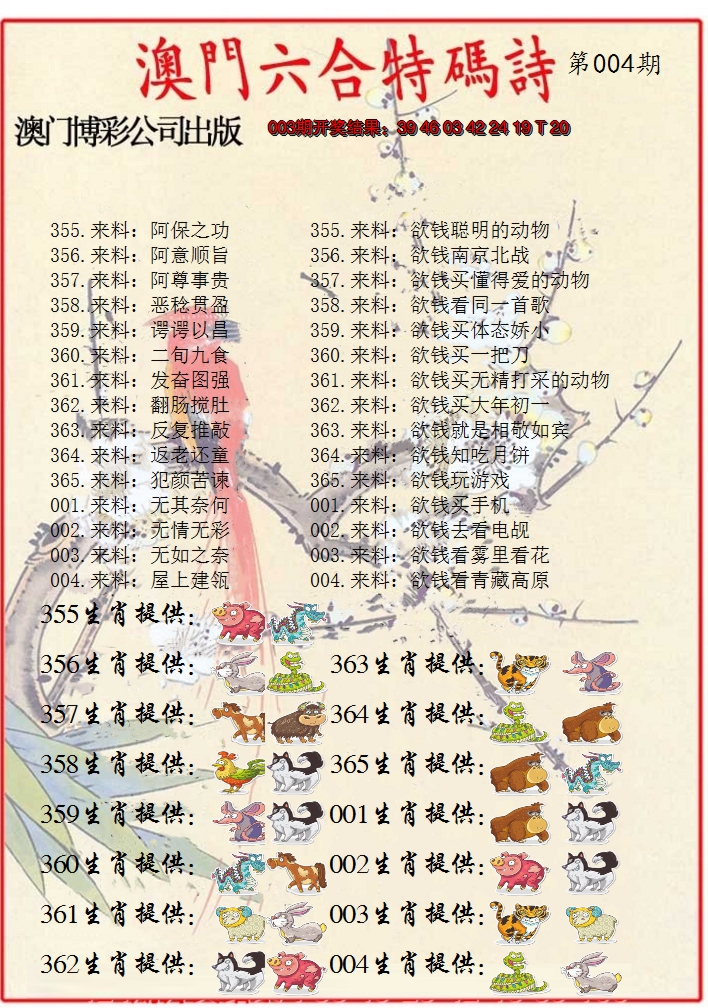 澳門六合特碼詩 第004期
澳门博彩公司出版 003期开奖结果：39 46 03 42 24 19 T 20
355.来料：阿保之功 355.来料：欲钱聪明的动物
356.来料：阿意顺旨 356.来料：欲钱南京北战
357.来料：阿尊事贵 357.来料：欲钱买懂得爱的动物
358.来料：恶稔贯盈 358.来料：欲钱看同一首歌
359.来料：谔谔以昌 359.来料：欲钱买体态娇小
360.来料：二旬九食 360.来料：欲钱买一把刀
361.来料：发奋图强 361.来料：欲钱买无精打采的动物
362.来料：翻肠搅肚 362.来料：欲钱买大年初一
363.来料：反复推敲 363.来料：欲钱就是相敬如宾
364.来料：返老还童 364.来料：欲钱知吃月饼
365.来料：犯颜苦谏 365.来料：欲钱玩游戏
001.来料：无其奈何 001.来料：欲钱买手机
002.来料：无情无彩 002.来料：欲钱去看电觇
003.来料：无如之奈 003.来料：欲钱看雾里看花
004.来料：屋上建瓴 004.来料：欲钱看青藏高原
355生肖提供：
356生肖提供： 363生肖提供：
357生肖提供： 364生肖提供：
358生肖提供： 365生肖提供：
359生肖提供： 001生肖提供：
360生肖提供： 002生肖提供：
361生肖提供： 003生肖提供：
362生肖提供： 004生肖提供：